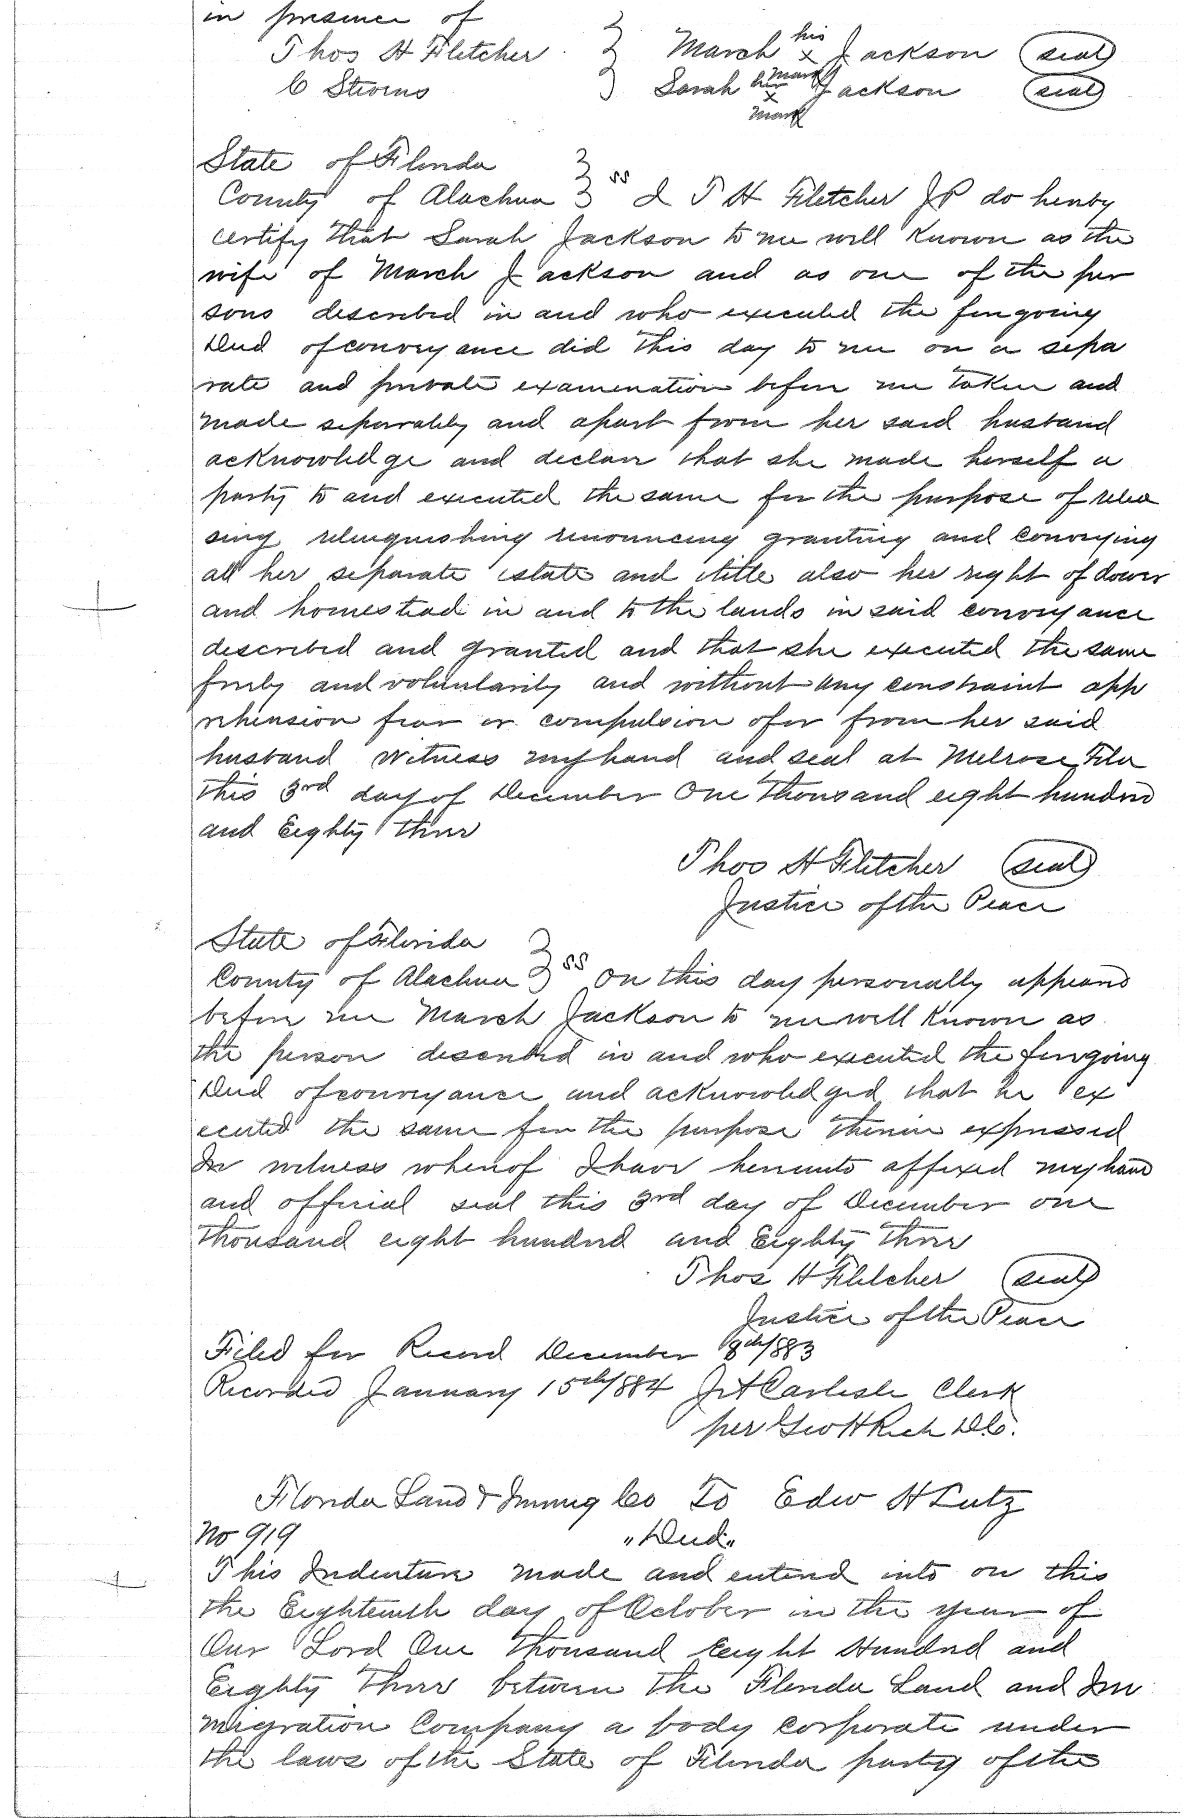 in presence of
Thos H Fletcher } March his x mark Jackson (seal)
C Stevens } Sarah her x mark Jackson (seal)
State of Florida
County of Alachua } ss I T H Fletcher JP do hereby
certify that Sarah Jackson to me well Known as the
wife of March Jackson and as one of the per
sons described in and who executed the foregoing
Deed of conveyance did this day to me on a sepa
rate and private examenation before me taken and
made separately and apart from her said husband
acknowledge and declare that she made herself a
party to and executed the same for the purpose of relea
sing relinquishing renouncing granting and conveying
all her separate estate and title also her right of dower
and homestead in and to the lands in said conveyance
described and granted and that she executed the same
freely and voluntarily and without any constraint app
rehension fear or compulsion of or from her said
husband Witness my hand and seal at Melrose Fla
this 3rd day of December One thousand eight hundred
and Eighty three
Thos H Fletcher (seal)
Justice of the Peace
State of Florida
County of Alachua } ss On this day personally appeared
before me March Jackson to me well Known as
the person described in and who executed the foregoing
Deed of conveyance and acknowledged that he ex
ecuted the same for the purpose therein expressed
In witness whereof I have hereunto affixed my hand
and official seal this 3rd day of December one
thousand eight hundred and Eighty three
Thos H Fletcher (seal)
Justice of the Peace
Filed for Record December 8th/883
Recorded January 15th/884 J A Carlisle Clerk
per Geo H Rich D.C.
Florida Land & Immig Co To Edw H Lutz
No 919 "Deed"
This Indenture made and entered into on this
the Eighteenth day of October in the year of
Our Lord One thousand Eeight Hundred and
Eighty Three between the Florida Land and Im
migration Company a body corporate under
the laws of the State of Florida party of the